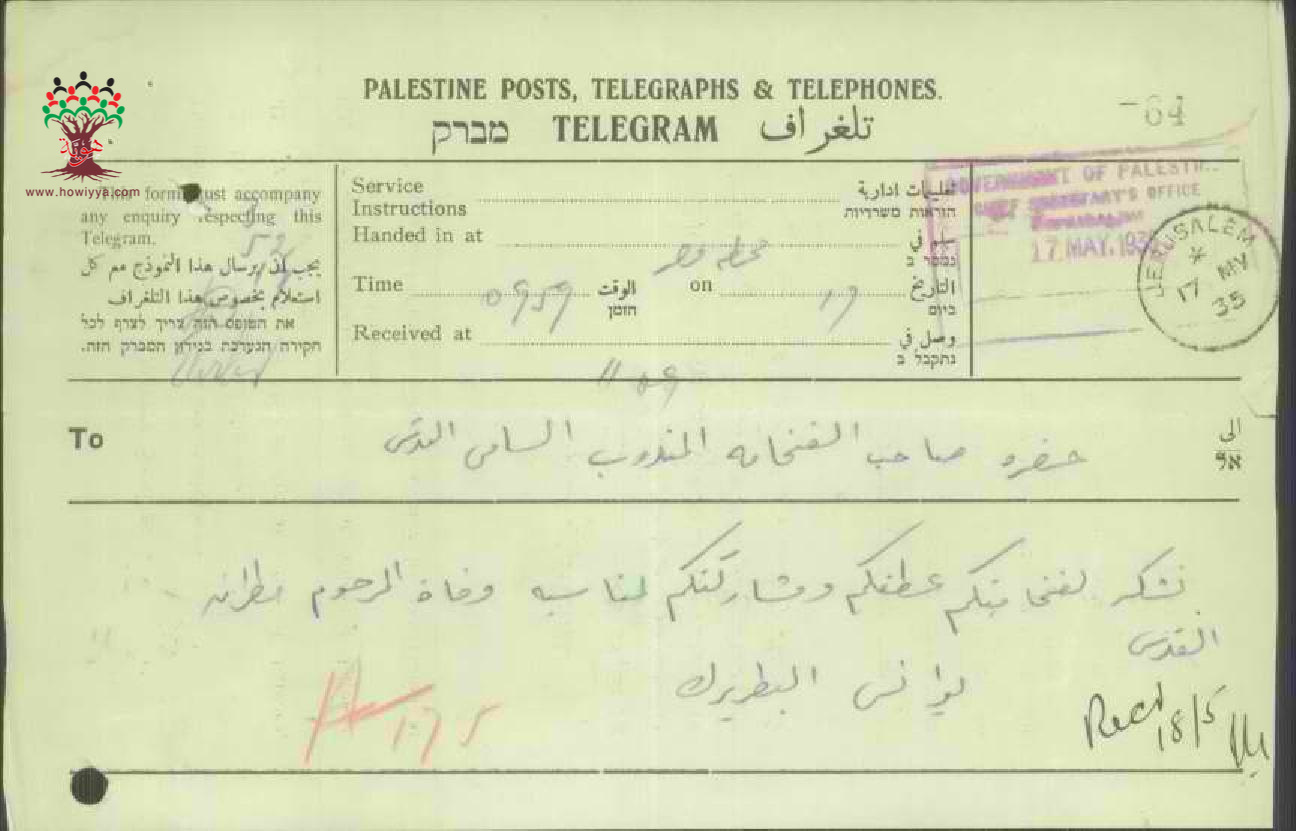 PALESTINE POSTS, TELEGRAPHS & TELEPHONES.
מברק TELEGRAM تلغراف
64
هوية
www.howiyya.com
This form must accompany
any enquiry respecting this
Telegram.
يجب ان يرسال هذا النموذج مع كل
استعلام بخصوص هذا التلغراف
את הטופס הזה צריך לצרף לכל
חקירה הנערכת בנידון המברק הזה.
Service
Instructions
تعليمات ادارية
הוראות משרדיות
Handed in at محطة مصر سلم في
נמסר ב
Time 0959 الوقت on 17 التاريخ
הזמן ביום
Received at وصل في
נתקבל ב
1109
GOVERNMENT OF PALESTI
CHIEF SECRETARY'S OFFICE
17 MAY. 193
JERUSALEM
17 MY
35
To حضره صاحب الفخامه المندوب السامى القدس الى
אל
نشكر لفخامتكم عطفكم ومشاركتكم لمناسبه وفاة المرحوم مطران
القدس
يوانس البطريرك
17 5
Recd
18/5